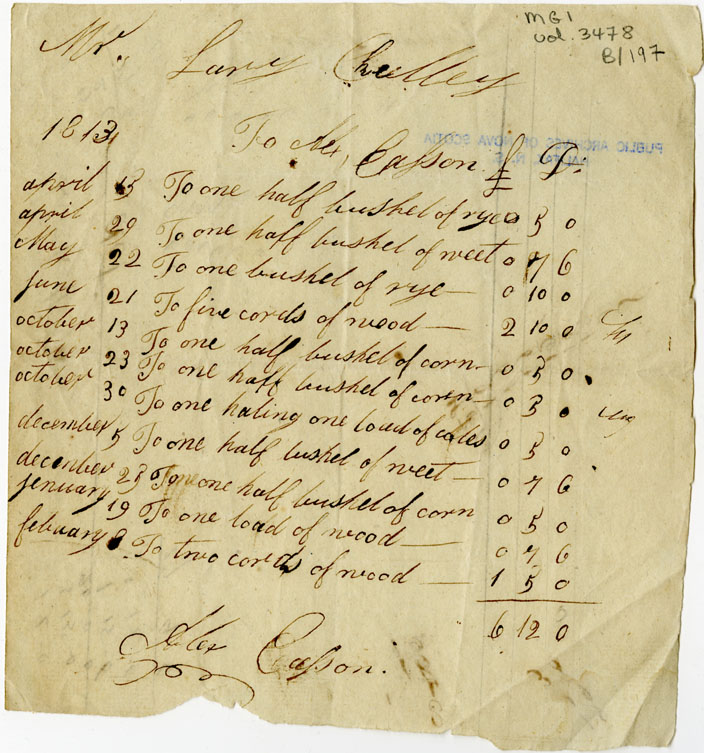 MG1
vol. 3478
B/197
Mr. Lavy Chulley
1813 To Alex, Casson £ D:
PUBLIC ARCHIVES OF NOVA SCOTIA
HALIFAX, N. S.
april 13 To one half bushel of rye 0 5 0
april 29 To one half bushel of weet 0 7 6
May 22 To one bushel of rye — 0 10 0
June 21 To five cords of wood — 2 10 0
october 13 To one half bushel of corn - 0 5 0
october 23 To one half bushel of corn - 0 5 0
october 30 To one haling one load of coles 0 5 0
december 5 To one half bushel of weet — 0 7 6
december 23 To one one half bushel of corn 0 5 0
jenuary 19 To one load of wood — 0 7 6
febuary 8 To two cords of wood — 1 5 0
6 12 0
Alex Casson.